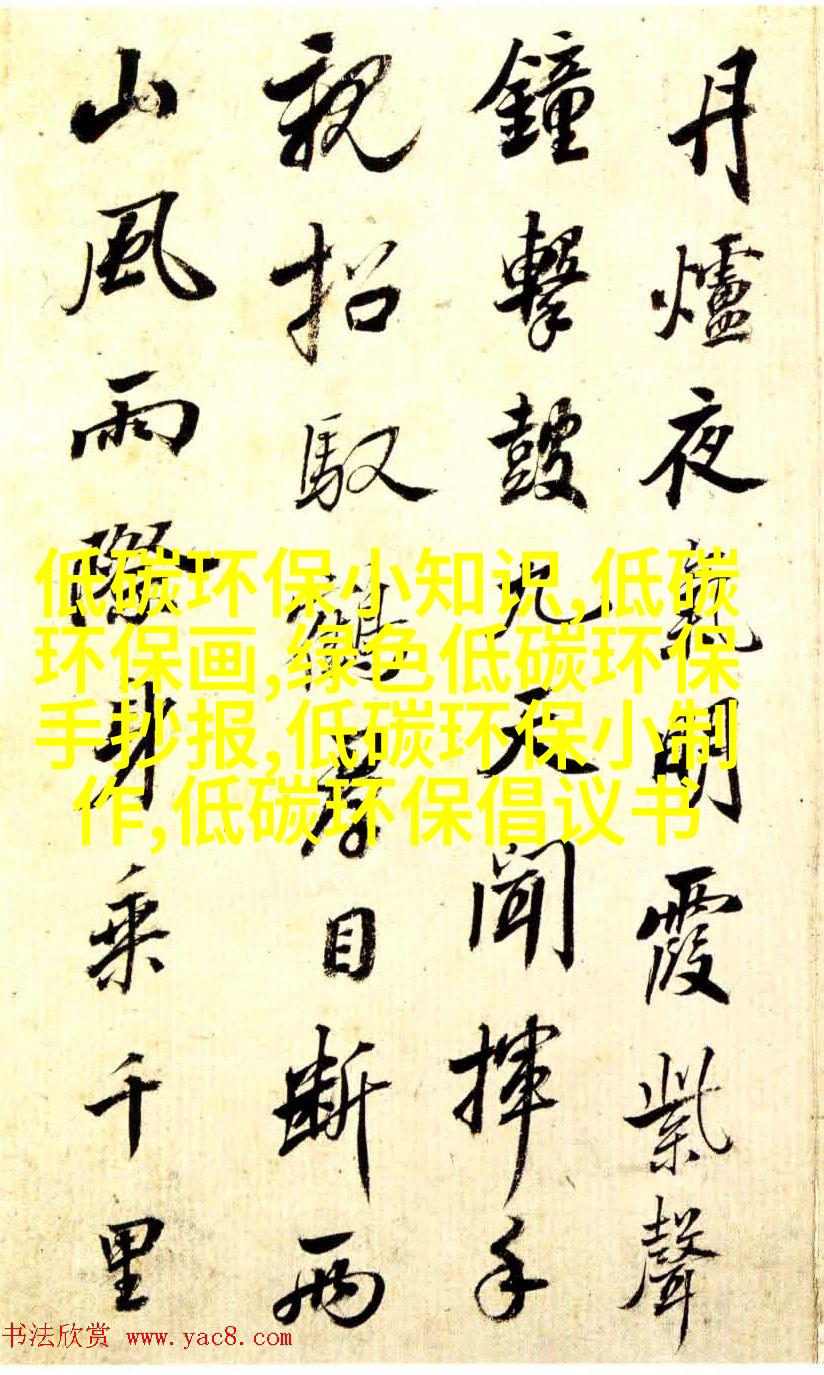 丹爐夜氣明霞紫聲
鐘擊鼓九天聞揮手
親招馭鶴羣目斷兩
山風雨際身乘千里
低碳环保小知识,低碳
环保画,绿色低碳环保
手抄报,低碳环保小制
作,低碳环保倡议书
书法欣赏 www.yac8.com